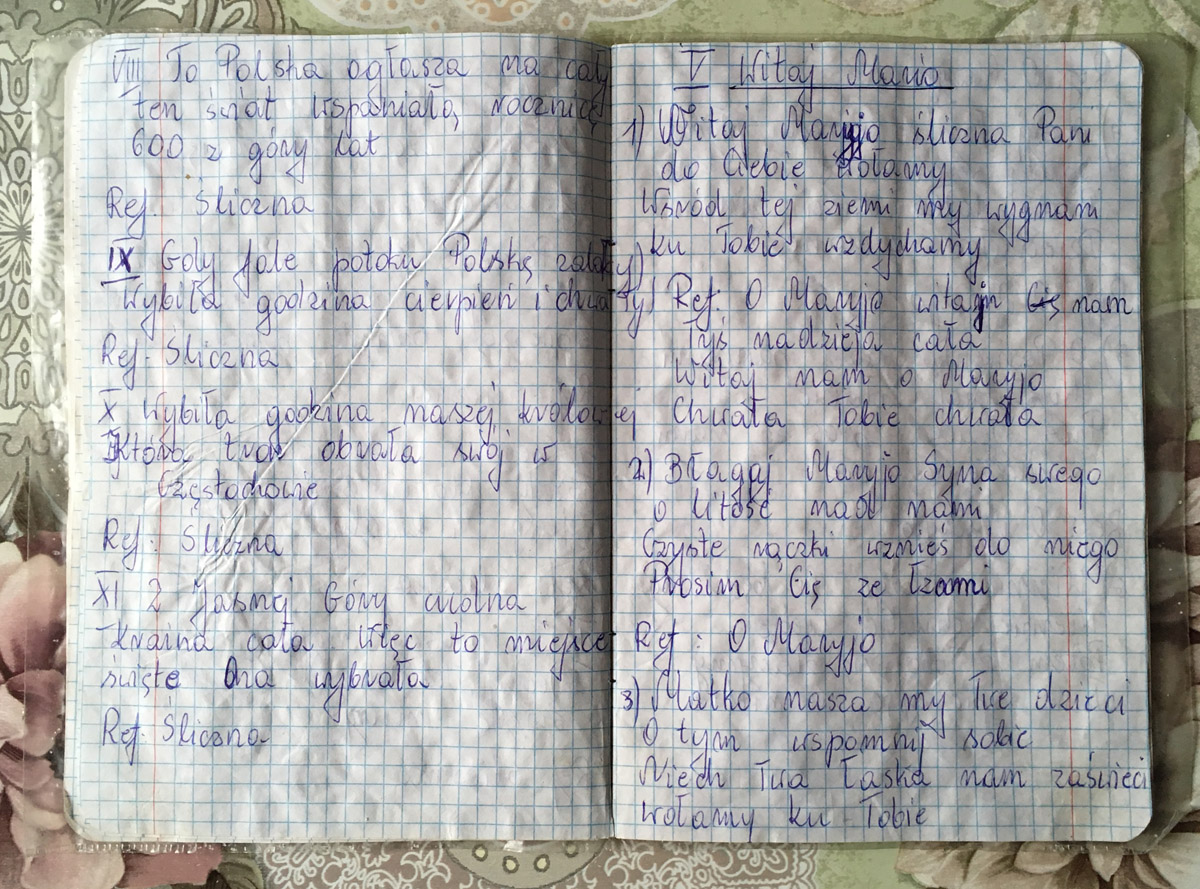 VIII To Polska ogłasza na cały
ten świat wspaniałą rocznicę
600 z góry lat
Ref. Śliczna
IX Gdy fale potoku Polskę zalały
Wybiła godzina cierpień i chwały
Ref. Śliczna
X Wybiła godzina naszej królowej
Która tron obrała swój w
Częstochowie
Ref: Śliczna
XI Z Jasnej Góry wolna
kraina cała więc to miejsce
święte Ona wybrała
Ref. Śliczna
V Witaj Mario
1) Witaj Maryjo śliczna Pani
do Ciebie wołamy
Wśród tej ziemi my wygnani
ku Tobie wzdychamy
Ref: O Maryjo witaj nam
Tyś nadzieja cała
Witaj nam o Maryjo
Chwała Tobie chwała
2) Błagaj Maryjo Syna swego
o litość nad nami
Czyste rączki wznieś do niego
Prosim Cię ze łzami
Ref: O Maryjo
3) Matko nasza my Twe dzieci
O tym wspomnij sobie
Niech Twa Łaska nam zaświeci
Wołamy ku Tobie